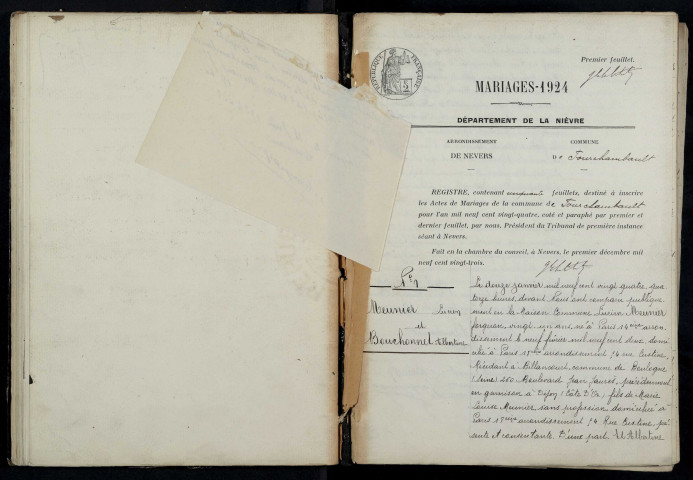 Premier feuillet.
RÉPUBLIQUE FRANÇAISE
MARIAGES-1924
DÉPARTEMENT DE LA NIÈVRE
ARRONDISSEMENT
DE NEVERS
COMMUNE
De Fourchambault
REGISTRE, contenant cinquante feuillets, destiné à inscrire
les Actes de Mariages de la commune de Fourchambault
pour l'an mil neuf cent vingt-quatre, coté et paraphé par premier et
dernier feuillet, par nous, Président du Tribunal de première instance
séant à Nevers.
Fait en la chambre du conseil, à Nevers, le premier décembre mil
neuf cent vingt-trois.
Meunier Lucien
et
Bouchonnet Albertine
Le douze janvier mil neuf cent vingt quatre aux
heures, devant Nous ont comparu publique
ment en la Maison Commune Lucien Meunier
forgeron, vingt un ans né à Paris 14me arron
dissement le neuf février mil neuf cent deux domi
cilié à Paris 18me arrondissement 24 rue Custine,
Résidant à Billancourt, commune de Boulogne
(Seine) 260 Boulevard Jean Jaurès, précédemment
en garnison à Dijon (Côte D'Or) fils de Marie
Louise Meunier, sans profession domiciliée à
Paris 18me arrondissement 24 Rue Custine, pré
sente et consentante D'une part. Et Albertine